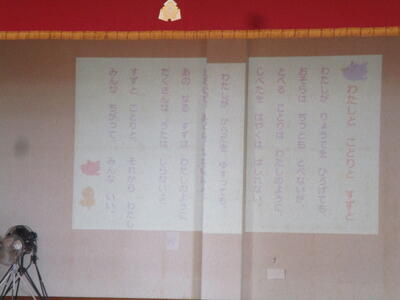 わたしと ことりと すずと
わたしが りょうてを ひろげても、
おそらは ちっとも とべないが、
とべる ことりは わたしのように、
じべたを はやくは はしれない。
わたしが からだを ゆすっても、
あの なる すずは わたしのように
たくさんな うたは しらないよ。
すずと、ことりと、それから わたし、
みんな ちがって、みんな いい。